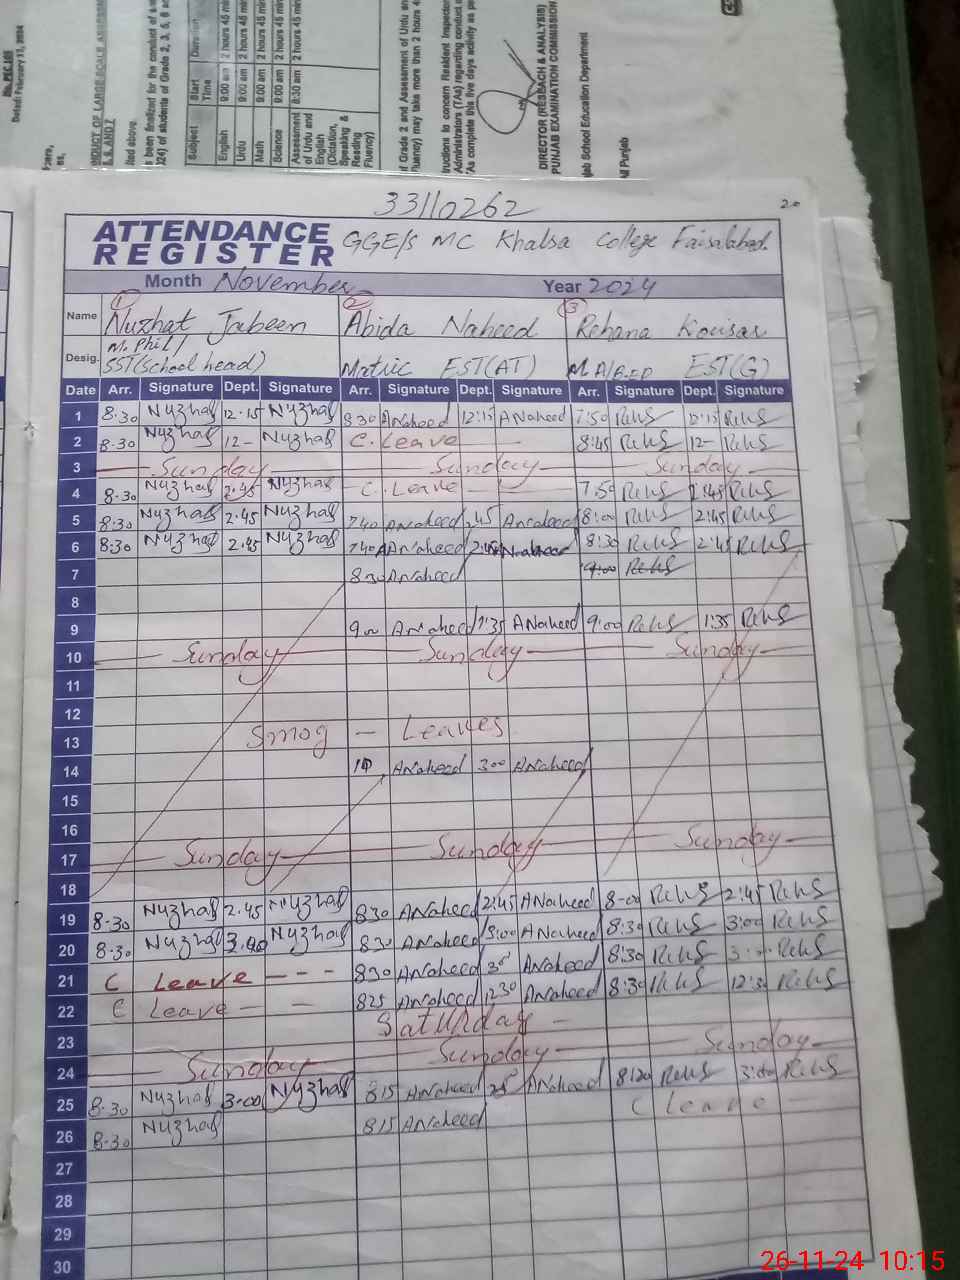 No. PEC
Dated: February 17, 2024
Subject Start Time Duration
English 9:00 am 2 hours 45 min
Urdu 9:00 am 2 hours 45 min
Math 9:00 am 2 hours 45 min
Science 9:00 am 2 hours 45 min
Assessment of Urdu and English (Dictation, Speaking & Reading Fluency) 8:30 am 2 hours 45 min
DIRECTOR (RESEACH & ANALYSIS)
PUNJAB EXAMINATION COMMISSION
jab School Education Department
Punjab
33110262
ATTENDANCE REGISTER GGE/S MC Khalsa College Faisalabad.
Month November Year 2024
1 2 3
Name Nuzhat Jabeen Abida Naheed Rehana Kousar
Desig. M. Phil / SST (School head) Matric EST(AT) MA/B.ED EST(G)
Date Arr. Signature Dept. Signature Arr. Signature Dept. Signature Arr. Signature Dept. Signature
1 8:30 Nuzhat 12-15 Nuzhat 830 ANaheed 12:15 ANaheed 7:50 RehS 12:15 RehS
2 8-30 Nuzhat 12- Nuzhat C. Leave — 8:45 RehS 12- RehS
3 Sunday Sunday Sunday
4 8-30 Nuzhat 2-45 Nuzhat C. Leave — 7:50 RehS 2:45 RehS
5 8:30 Nuzhat 2-45 Nuzhat 740 ANaheed 245 Anaheed 8:00 RehS 2:45 RehS
6 8:30 Nuzhat 2-45 Nuzhat 740 ANaheed 2:45 Naheed 8:30 RehS 2:45 RehS
7 830 ANaheed 9:00 RehS
8
9 900 ANaheed 1:35 ANaheed 9:00 RehS 1:35 RehS
10 Sunday Sunday Sunday
11
12
13 Smog - Leaves
14 ANaheed 300 ANaheed
15
16
17 Sunday Sunday Sunday
18
19 8-30 Nuzhat 2-45 Nuzhat 830 ANaheed 2:45 ANaheed 8-00 RehS 2:45 RehS
20 8-30 Nuzhat 3-00 Nuzhat 830 ANaheed 3:00 ANaheed 8:30 RehS 3:00 RehS
21 C Leave - - - 830 ANaheed ANaheed 8:30 RehS RehS
22 C Leave - - 825 ANaheed 1230 ANaheed 8:30 RehS 12:30 RehS
23 Saturday -
24 Sunday Sunday Sunday
25 8-30 Nuzhat 3-00 Nuzhat 815 ANaheed ANaheed 8:20 RehS 3:00 RehS
26 8-30 Nuzhat 815 ANaheed C leave -
27
28
29
30
26-11-24 10:15